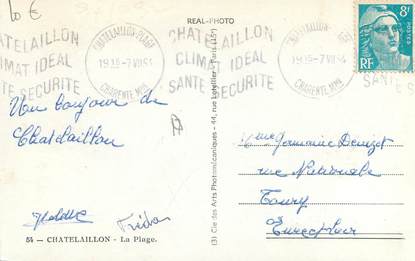 10 €
REAL-PHOTO
CHATELAILLON
CLIMAT IDEAL
SANTE SECURITE
CHATELAILLON-PLAGE
19 15 - 7 VII 51
CHARENTE MME
CHATELAILLON
CLIMAT IDEAL
SANTE SECURITE
19 15 - 7 VII 51
CHARENTE MME
8F
POSTES
RF
SANTE
Un bonjour de
Chatelaillon
54 — CHATELAILLON - La Plage.
(3) Cie des Arts Photomécaniques - 44, rue Letellier - Paris (15e)
Mme Germaine Denizet
rue Nationale
Toury
Eure et Loir